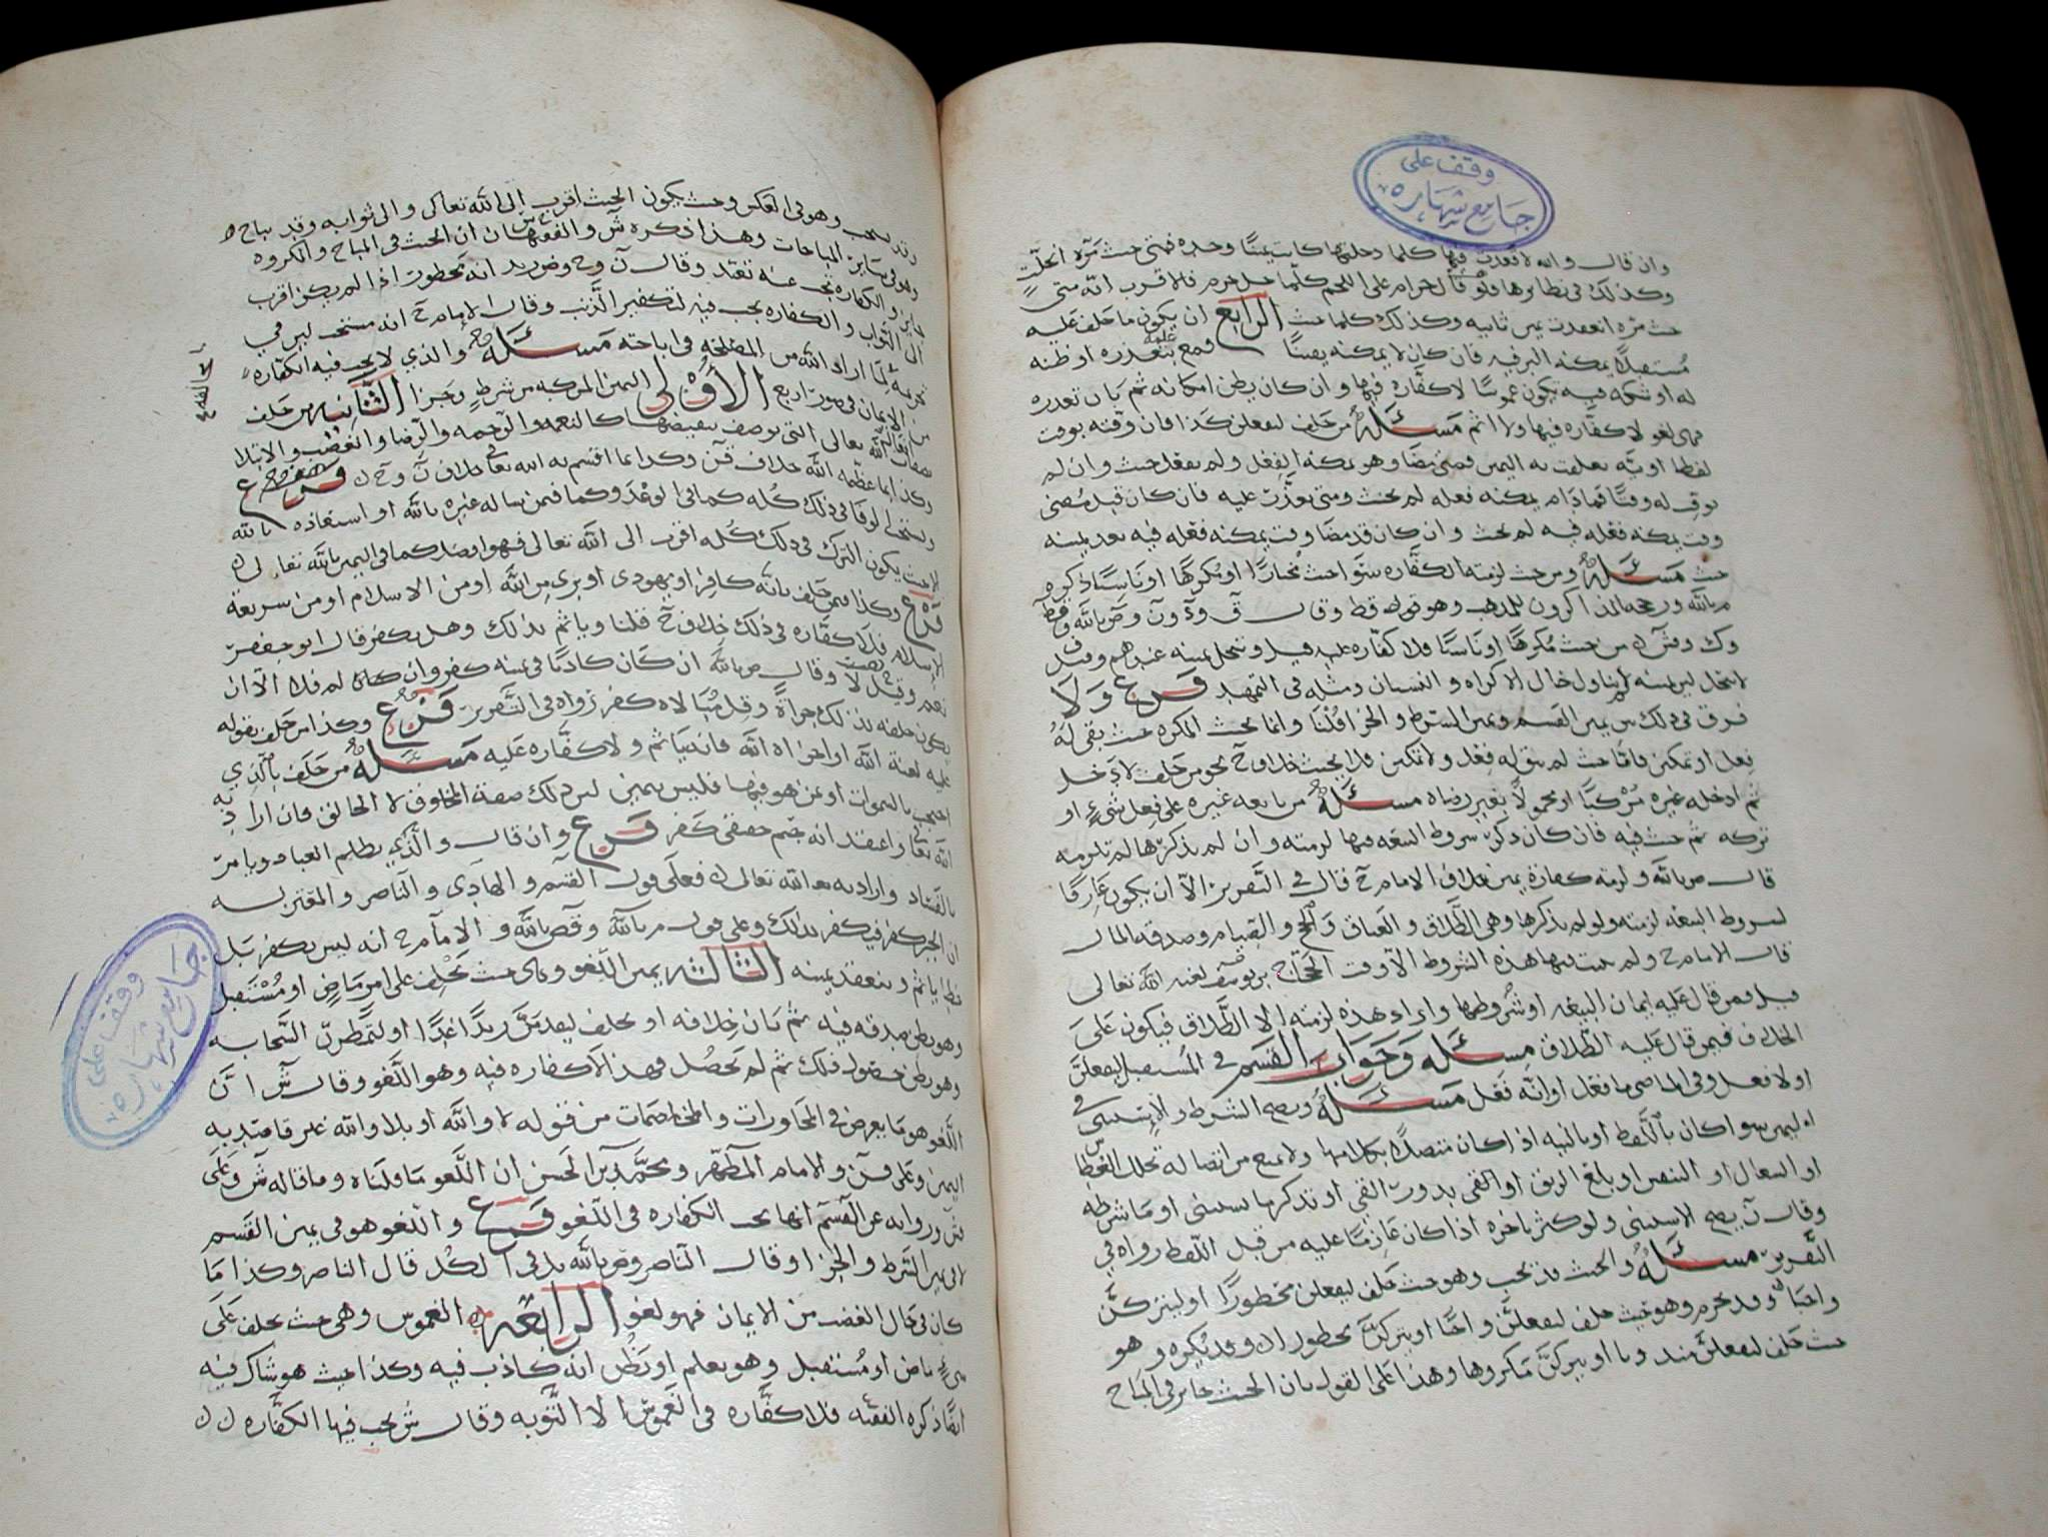 وقف على
جامع شهاره
وان قال والله لا قعدت فيها كلما دخلتها كانت يمينًا وحده فمتى حنث مرّه انحلّت
وكذلك في نظايرها ولو قال حرام على اللحم كلّما حل حرم فالاقرب انه متى
حنث مرّه انعقدت يمين ثانيه وكذلك كلما حنث الرابع ان يكون ما حلف عليه
مُستقبلًا يمكنه البر فيه فان كان لا يمكنه يقينًا فمع علمه بتعذره او ظنه
له او شكه فيه يكون غموسًا لا كفّاره فيها وان كان يظن امكانه ثم بان تعذره
فهى لغو لا كفّاره فيها ولا اثم مسئله من حلف ليفعلن كذا فان وقته بوقت
لفظا او نيّه تعلقت به اليمين فمتى مضا وهو يمكنه الفعل ولم يفعل حنث وان لم
يوقت له وقتًا فمادام يمكنه فعله لم يحنث ومتى تعذّر عليه فان كان قبل مُضى
وقت يمكنه فعله فيه لم يحنث وان كان قد مضا وقت يمكنه فعله فيه بعد يمينه
حنث مسئله ومن حنث لزمته الكفّاره سَوا حنث مُختارًا او مُكرهًا او ناسيًا ذكره
من حنث مُكرهًا او ناسيًا فلا كفّاره عليه قيل وتنحل يمينه
لا تنحل ليمينه لم يتناول حال الاكراه والنسيان ومثله في التمهيد فرع ولا
فرق في ذلك بين يمين القسم ويمين الشرط والجزا قُلنا وانما يحنث المكره حيث بقى لهُ
فِعل او تمكن فامّا حيث لم يبق له فِعل ولا تمكن فلا يحنث خلاف ح نحو من حلف لا دخل
ثم ادخله غيره مُرْكبًا او محمولًا بغير رضاه مسئله من بايعه غيره على فِعل شىءٍ او
تركه ثم حنث فيه فان كان ذكر شروط البيعه فيها لزمته وان لم يذكرها لم تلزمه
قال ص بالله ولزمته كفارة يمين خلاف الامام ح قال في التقرير الّا ان يكون عَارفًا
لشروط البيعه لزمته ولو لم يذكرها وهى الطّلاق والعتاق والحج والصيام وصدقه المال
قال الامام ح ولم يحدث فيها هذه الشروط الّا وقت الحجّاج بن يوسف لعنه الله تعالى
قيل فمن قال عليه ايمان البيعه او شُروطها واراد هذه لزمته الا الطّلاق فيكون على
الخلاف فيمن قال عليه الطّلاق مسئله وجواب القسم في المُستقبل ليفعلنّ
او لا فعل وفي الماضى ما فعل او انه فعل مسئله ويصح الشرط والاستثنى في
اليمين سوا كان باللفظ او بالنيه اذا كان متصلًا بكلامها ولا يمنع من اتصاله تخلل العطاس
او السعال او التنفس او بلغ الريق او القى بدور القى او تذكر ما يستثنى او ما شرطه
وقال ن يصح الاستثنى ولو كثر تاخره اذا كان عَازمًا عليه من قبل اللفظ رواه في
التقرير مسئله والحنث قد يجب وهو حيث حَلف ليفعلن محظورًا او ليتركنّ
واجبًا وقد يحرم وهو حيث حلف ليفعلنّ واجبًا او يتركنّ محظورًا وقد يكره وهو
حيث حلف ليفعلنّ مندوبا او يتركنّ مكروها وهذا على القول بان الحنث جايز في المباح
وقد يستحب وهو في العكس وحيث يكون الحنث اقرب الى الله تعالى والى ثوابه وقد يباح
وهو في ساير المباحات وهذا ذكره ش والفقهان ان الحنث في المباح والمكروه
جايز والكفاره تجب عنه تعبّد وقال
الى الثواب والكفاره تجب فيه لتكفير الذّنب وقال الامام ح انه مستحب ليس في
تحريمه لِما اراد الله من المصلحه في اباحته مسئله والذي لا تجب فيه الكفّاره
من الايمان في صور اربع الأولى اليمين المركبه من شرطٍ وجزا الثّانيه من حلف
بصفات الله تعالى التى يوصف بنقيضها كالنعمه والرّحمه والرّضا والغضب والابتلا
وكذا بما عظّمه الله خلاف
فرع
ويستحب الوفا في ذلك كُله كما في الوعد وكما فيمن ساله غيره بالله او استعاذه بالله
الا حيث يكون الترك في ذلك كُله اقرب الى الله تعالى فهو افضل كما في اليمين بالله تعالى
فرع وكذا فيمن حلف بانّه كافر او يهودى او برى من الله او من الاسلام او من شريعة
الاسلام فلا كفّاره في ذلك خلاف ح قلنا وياثم بذلك وهل يكفر قال ابو جعفر
نعم وقيل لا وقال ص بالله ان كان كاذبًا في يمينه كفر وان كان لم فلا الّا ان
يكون حلفه بذلك جراةً وقِلّ مُبَالاه كفر رواه في التّقرير فرع وكذا من حلف بقوله
عليه لعنة الله او اخزاه الله فانه ياثم ولا كفّاره عليه مسئله من حَلف بالذي
احتجب بالسموات او بمن هو فيها فليس بيمين ليس ذلك صفة المخلوق لا الخالق فان اراد به
الله تعالى واعتقد انه جسم حقيقى كفر فرع وان قال والّذي يظلم العباد ويامر
بالفساد واراد به الله تعالى فعلى قول القسم والهادِى والناصر والمعتزله
ان الجبر كفر فيكفر بذلك وعلى قول م بالله وص بالله والامام ح انه ليس بكفر بَل
خطا ياثم وينعقد يمينه الثالثه يمين اللغو وهى حيث تحلِف على امر مَاضٍ او مُستقبل
وهو يظن صدقه فيه ثم بَان خِلافه او يحلف ليقدمنّ زيدًا غدًا او لتمطرنّ السّحابه
وهو يظن حصول ذلك ثم لم يَحصُل فهذا لا كفاره فيه وهو اللّغو وقال ش ان
اللّغو هو ما يعرض في المحاورات والمخاصمات من قوله لا والله او بلا والله غير قاصد به
اليمين وعلى م ن والامام المطهر ومحمّد بن الحسن ان اللّغو ما قلناه وما قاله ش وعَلى
ش وروايه عن القسم انها تجب الكفاره في اللّغو فرع واللغو هو في يمين القسم
لا في يمين الشّرط والجزا وقال الناصر وص بالله بل في الكُل قال الناصر وكذا مَا
كان في حال الغضب من الايمان فهو لغو الرابعه الغموس وهى حيث يحلف عَلى
شىءٍ ماضٍ او مُستقبل وهو يعلم او يظُن انه كاذب فيه وكذا حيث هو شاك فيه
ايضًا ذكره الفقيه فلا كفّاره في الغموس الا التّوبه وقال ش تجب فيها الكفّاره
وقف على
جامع شهاره